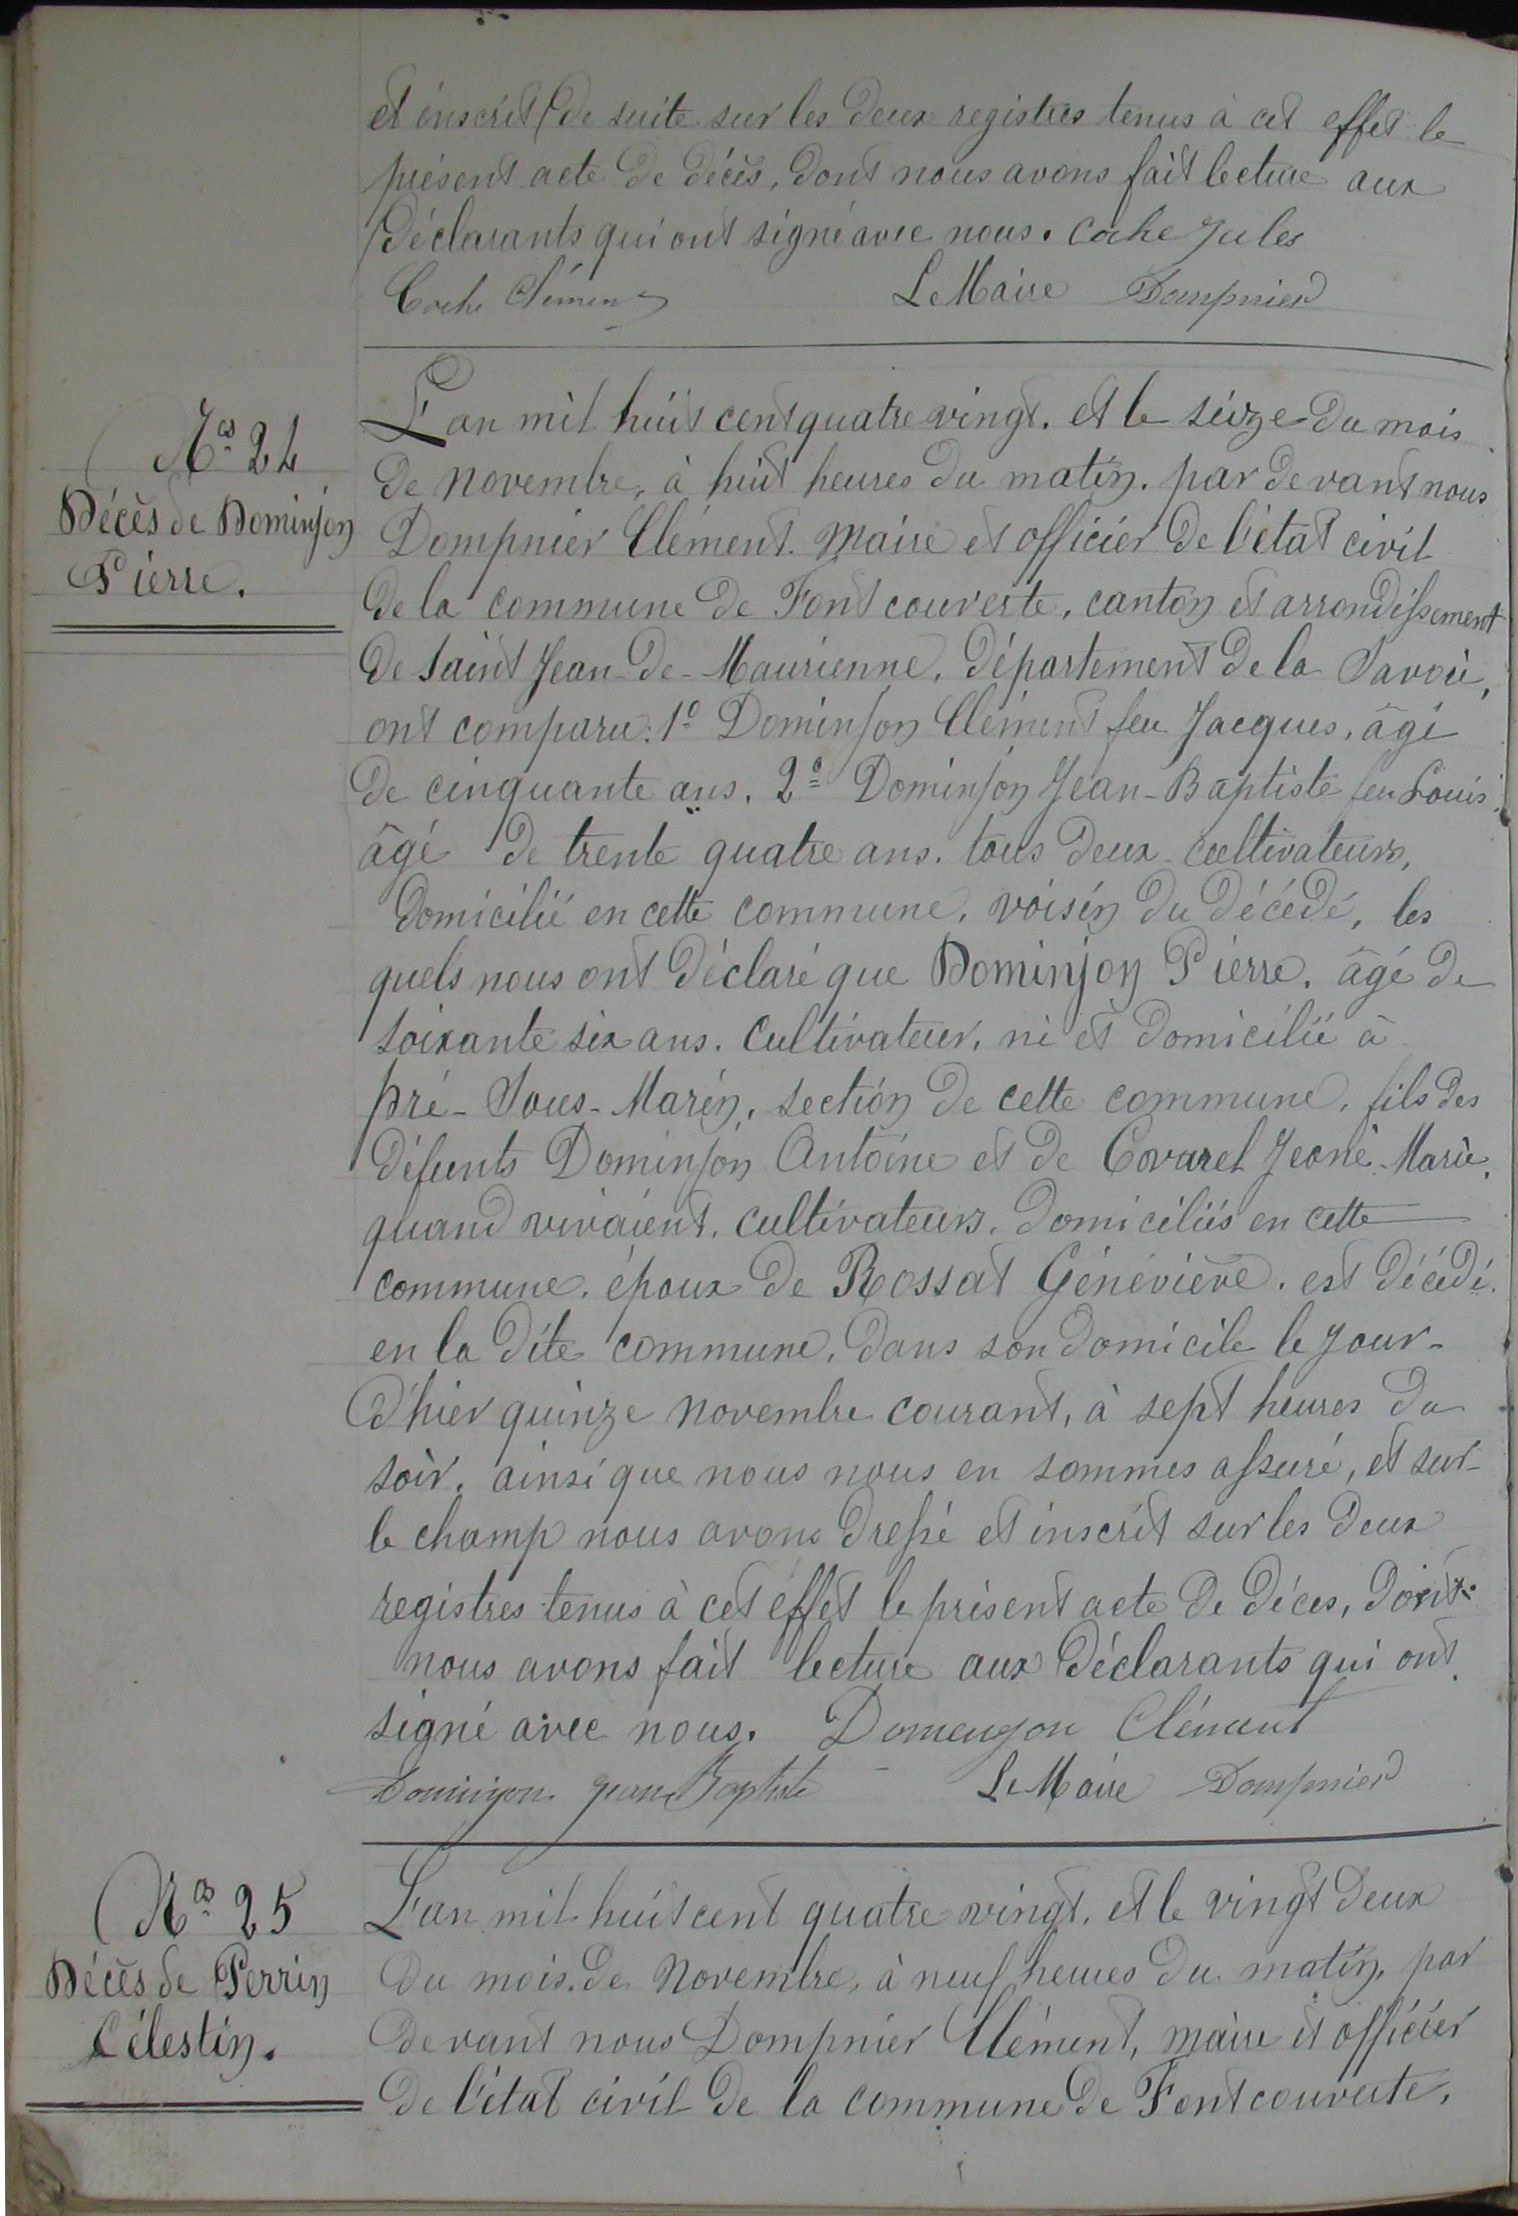 et inscrit de suite sur les deux registres tenus à cet effet le
présent acte de décès, dont nous avons fait lecture aux
déclarants qui ont signé avec nous. Coche Jules
Coche Clément Le Maire Dompnier
No 24
Décès de Dominjon
Pierre.
L'an mil huit cent quatre vingt. et le seize du mois
de novembre, à huit heures du matin. par devant nous
Dompnier Clément. Maire et officier de l'état civil
de la commune de Fontcouverte, canton et arrondissement
de Saint Jean-de-Maurienne, département de la Savoie,
ont comparu: 1º Dominjon Clément feu Jacques, âgé
de cinquante ans. 2º Dominjon Jean-Baptiste feu Louis,
âgé de trente quatre ans. tous deux cultivateurs,
domicilié en cette commune, voisin du décédé, les
quels nous ont déclaré que Dominjon Pierre. âgé de
soixante six ans. Cultivateur, né et domicilié à
pré-Sous-Marin, section de cette commune, fils des
défunts Dominjon Antoine et de Covarel Jeane-Marie,
quand vivaient, cultivateurs, domiciliés en cette
commune. époux de Rossat Généviève. est décédé.
en la dite commune, dans son domicile le jour-
d'hier quinze novembre courant, à sept heures du
soir. ainsi que nous nous en sommes assuré, et sur-
le champ nous avons dressé et inscrit sur les deux
registres tenus à cet effet le présent acte de décès, dont
nous avons fait lecture aux déclarants qui ont
signé avec nous. Domenjon Clément
Dominjon jean Baptiste Le Maire Dompnier
No 25
Décès de Perrin
Célestin.
L'an mil huit cent quatre vingt, et le vingt deux
du mois de Novembre, à neuf heures du matin, par
devant nous Dompnier Clément, maire et officier
de l'état civil de la commune de Fontcouverte,